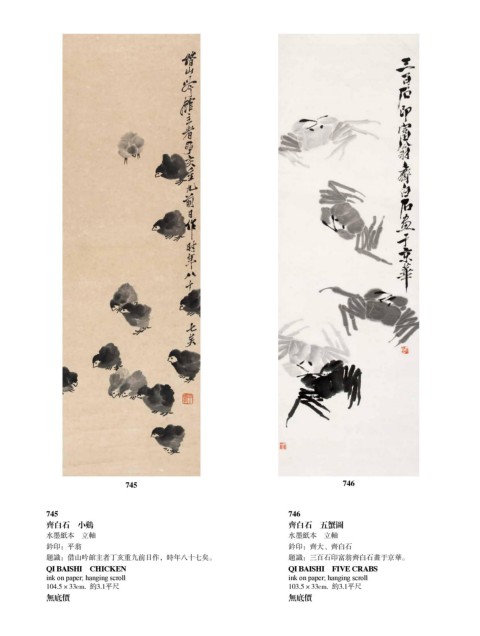 借山吟館主者丁亥重九前日作時年八十
七矣
三百石印富翁齊白石畫于京華
745
746
745
齊白石　小鷄
水墨紙本　立軸
鈐印：平翁
題識：借山吟館主者丁亥重九前日作，時年八十七矣。
QI BAISHI　CHICKEN
ink on paper; hanging scroll
104.5 × 33cm.  約3.1平尺
無底價
746
齊白石　五蟹圖
水墨紙本　立軸
鈐印：齊大、齊白石
題識：三百石印富翁齊白石畫于京華。
QI BAISHI　FIVE CRABS
ink on paper; hanging scroll
103.5 × 33cm.  約3.1平尺
無底價